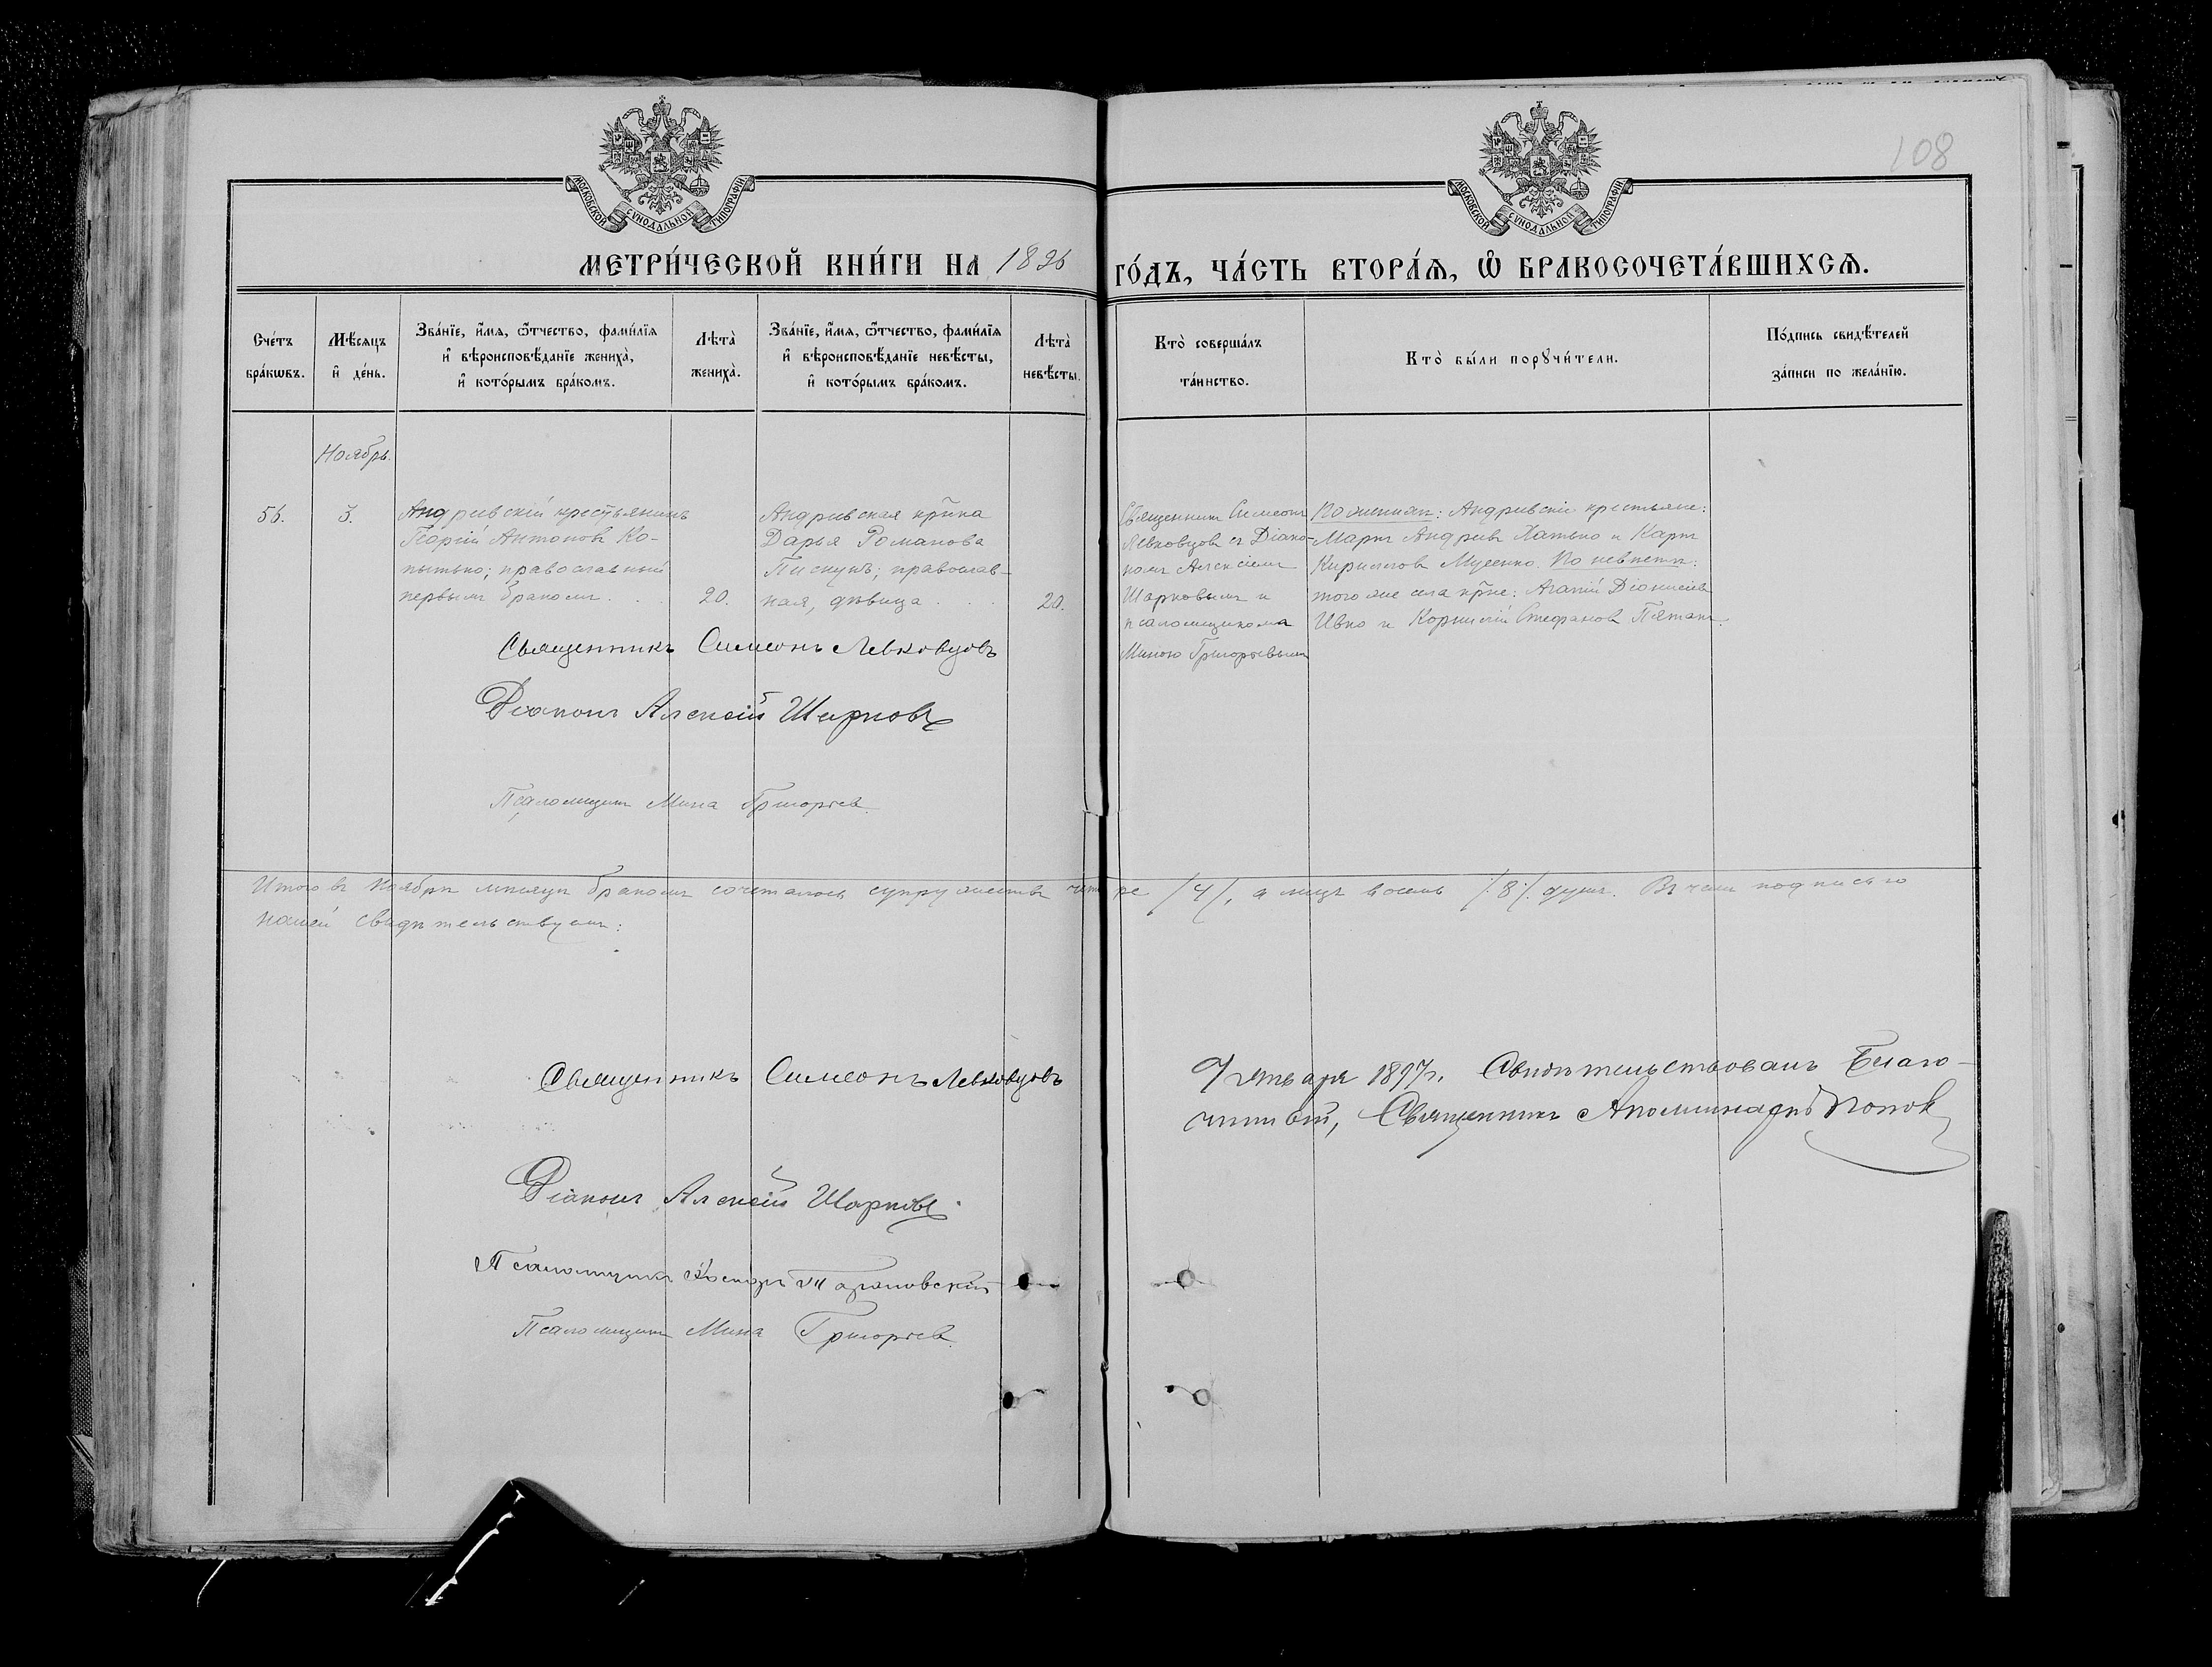 108
МОСКОВСКОЙ СѴНОДАЛЬНОЙ ТИПОГРАФІИ
МОСКОВСКОЙ СѴНОДАЛЬНОЙ ТИПОГРАФІИ
МЕТРИ́ЧЕСКОЙ КНИ́ГИ НА 1896 ГО́ДЪ, ЧА́СТЬ ВТОРА́Ѧ, Ѽ БРАКОСОЧЕТА́ВШИХСѦ.
Сче́тъ
бра́кѡвъ.
Мѣ́сяцъ
и҆ де́нь.
Зва́нїе, и҆́мѧ, ѻ҆́тчество, фами́лїѧ
и҆ вѣроисповѣ́данїе жениха̀,
и҆ кото́рымъ бра́комъ.
Лѣта̀
жениха̀.
Зва́нїе, и҆́мѧ, ѻ҆́тчество, фами́лїѧ
и҆ вѣроисповѣ́данїе невѣ́сты,
и҆ кото́рымъ бра́комъ.
Лѣта̀
невѣ́сты.
Кто̀ соверша́лъ
та́инство.
Кто̀ бы́ли порꙋчи́тели.
По́дпись свидѣ́телей
за́писи по жела́нїю.
Ноябрь.
56.
3.
Андреевскій крестьянинъ
Георгій Антоновъ Ко-
пытько; православный
первымъ бракомъ . .
20.
Андреевская кр̃нка
Дарья Романова
Пискунъ; православ-
ная, дѣвица . . .
20.
Священникъ Симеонъ
Левковцовъ съ Діако-
номъ Алексіемъ
Шарковымъ и
псаломщикомъ
Миною Григорьевымъ
По женихѣ: Андреевскіе крестьяне:
Маркъ Андреевъ Хатько и Карпъ
Кирилловъ Мусенко. По невѣстѣ:
того же села кр̃не: Агапій Діонисіевъ
Ивко и Корнилій Стефановъ Пятакъ.
Священникъ Симеонъ Левковцовъ
Діаконъ Алексій Шарковъ
Псаломщикъ Мина Григорьевъ
Итого въ Ноябрѣ мѣсяцѣ бракомъ сочеталось супружествъ четыре /4/, а лицъ восемь /:8:/ душъ. Въ чемъ подписью
нашей свидѣтельствуемъ:
Священникъ Симеонъ Левковцовъ
Діаконъ Алексій Шарковъ
Псаломщикъ
Псаломщикъ Мина Григорьевъ
Января 1897 г. Свидѣтельствовалъ Благо-
чинный, Священникъ Аполлинарій Поповъ